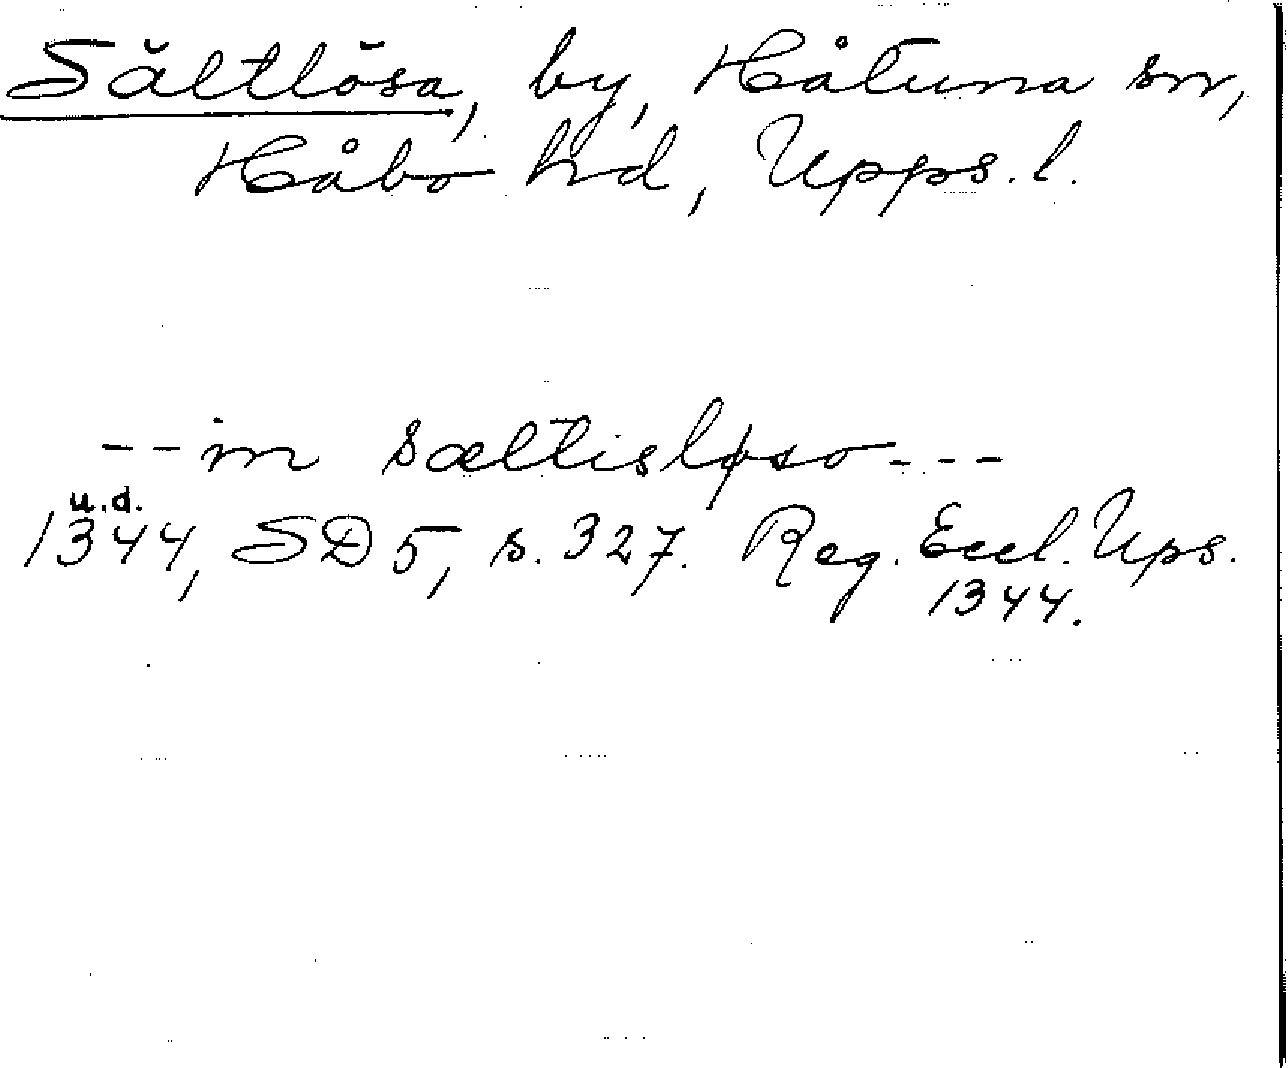 Sältlösa, by, Håtuna sn,
Håbo hd, Upps. l.
--in sæltisløso---
u.d.
1344, SD 5, s. 327. Reg. Eccl. Ups.
1344.